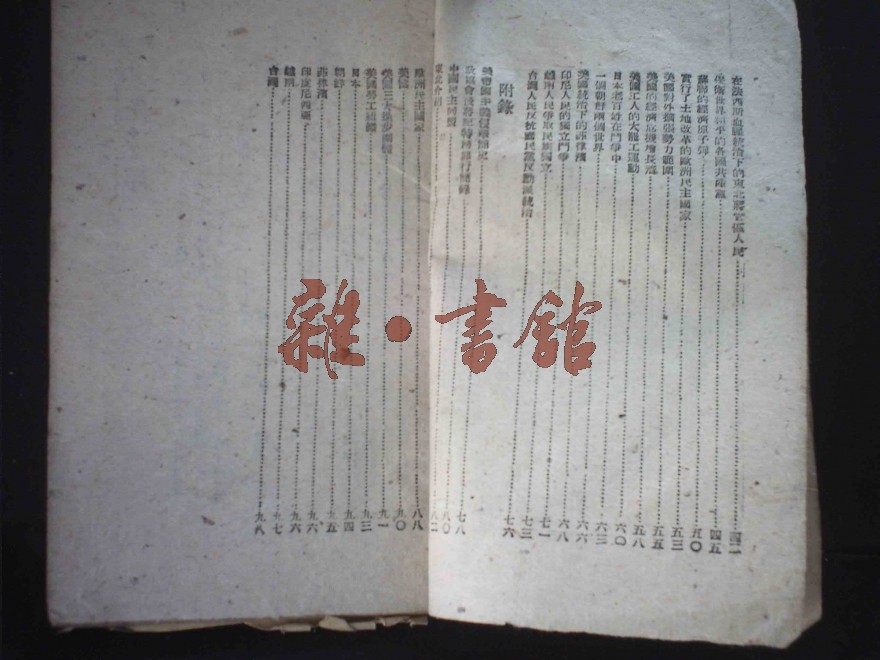 在法西斯血腥統治下的東北蔣管區人民……四二
保衛世界和平的各國共產黨……四五
蘇聯的經濟原子彈……五〇
實行了土地改革的歐洲民主國家……五三
美國對外擴張勢力範圍……五五
美國的經濟危機增長着……五八
美國工人的大罷工運動
日本老百姓在鬥爭中……六〇
一個朝鮮兩個世界……六三
美國統治下的菲律濱……六六
印尼人民的獨立鬥爭……六八
越南人民爭取民族獨立……七一
台灣人民反抗國民黨反動派統治……七三
附錄……七六
美帝國主義侵華簡史……七八
中國民主同盟……八〇
東北介紹……八二
歐洲民主國家……八八
美國……九〇
美國三大進步團體……九一
美國勞工組織……九三
日本……九四
朝鮮……九五
菲律濱……九六
印度尼西亞……九六
越南……九七
台灣……九八
雜·書舘